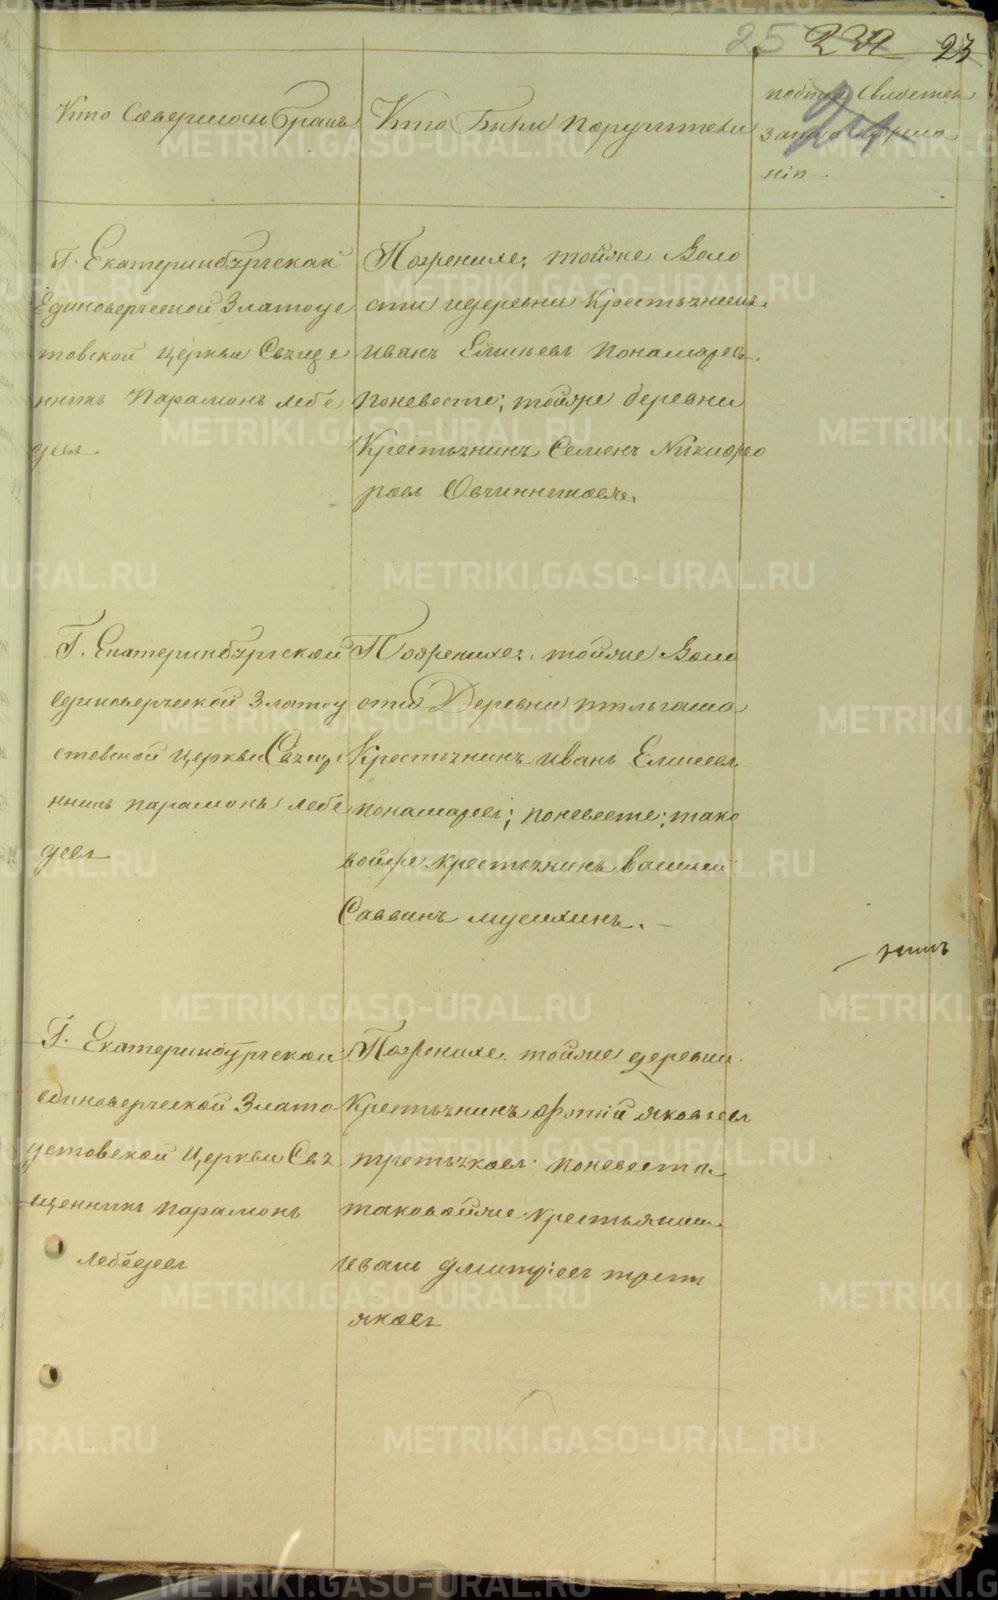 25 239 23
Кто Совершалъ Бракъ
Кто Были поручители
24
подпись свидетел
записи
нiи
Г. Екатеринбургской
Единоверческой Златоус
товской церкви Священ
никъ Парамонъ Лебе
девъ.
По женихе; тойже Воло
сти и деревни Крестьянинъ
Иванъ Елисѣевъ Понамаревъ
По невесте; тойже деревни
Крестьянинъ Семенъ Никифо
ровъ Овчинниковъ.
Г. Екатеринбургской
единоверческой Златоу
стовской церкви Свящ
нникъ парамонъ Лебе
девъ
По женихе: тойже Воло
сти Деревни
Крестьянинъ иванъ Елисеевъ
понамаревъ; по невесте; тако
войже крестьянинъ Василий
Саввинъ мушихинъ. –
Г. Екатеринбургской
единоверческой Злато
устовской церкви Свя
щенникъ парамонъ
Лебедевъ
По женихе тойже деревни
Крестьянинъ фотiй яковлевъ
третьяковъ по невести
таковойже крестьянинъ
иванъ дмитрiевъ трет
яковъ
METRIKI.GASO-URAL.RU